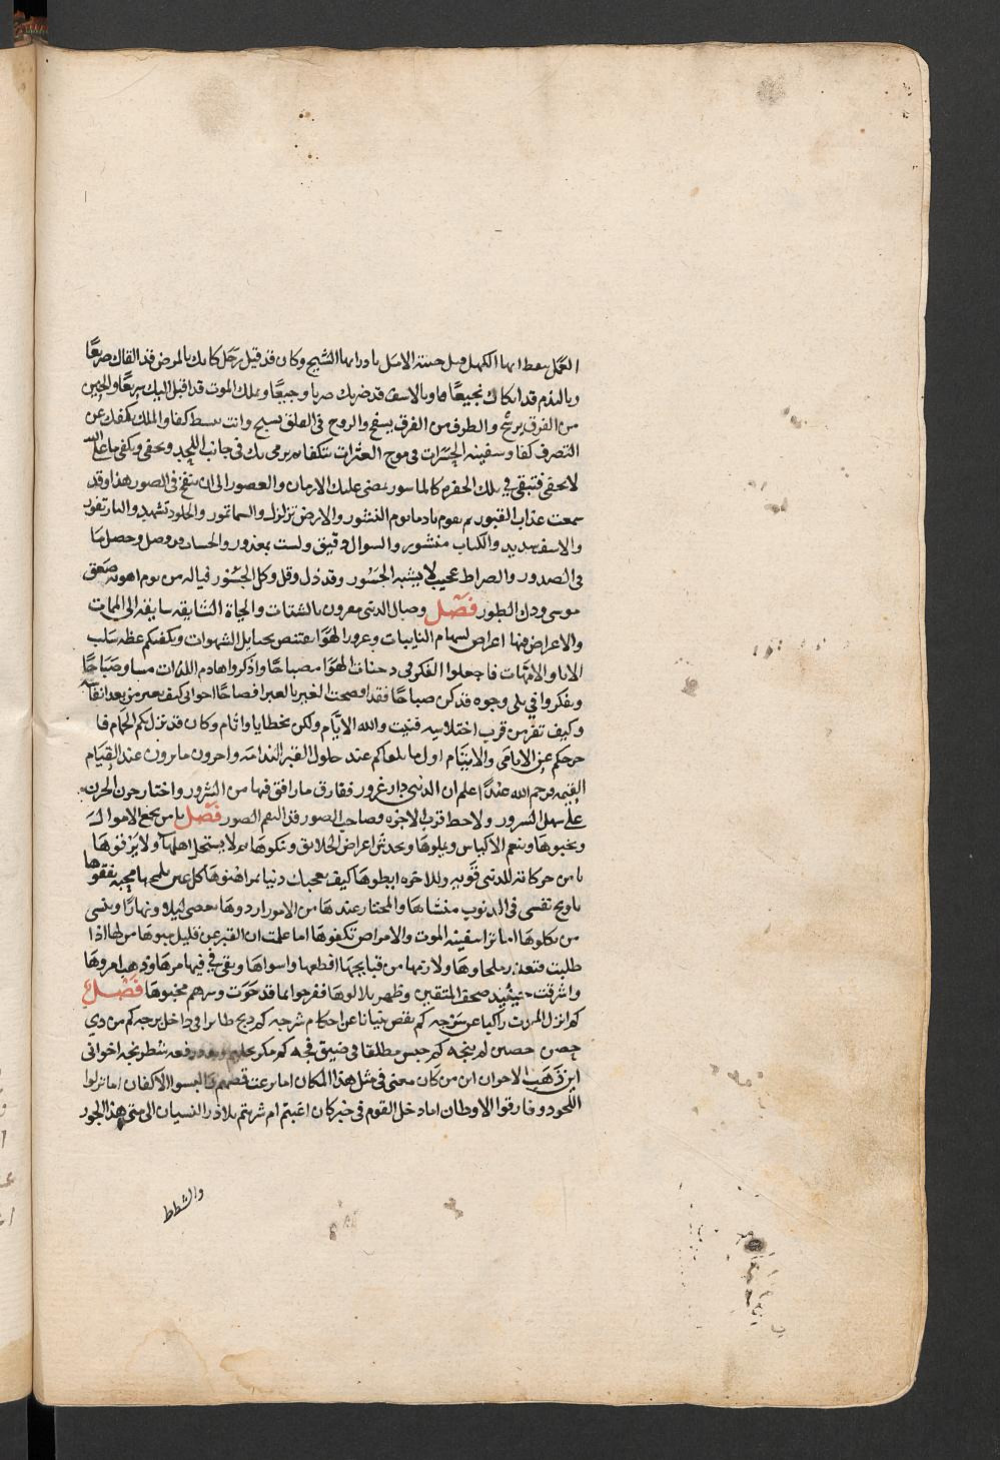 العمل فقط ايها الكهل وصل حسنة الاصل بادر ايها الشيخ وكان قد قيل رحل كانك بالمرض قد القاك صريعًا
وبالندم قد ابكاك نجيعًا وبالاسف قد ضربك ضربا وجيعًا وبملك الموت قد اقبل اليك سريعًا والجبين
من الفرق يرشح والطرف من الفرق يسفح والروح في الفلق تسبح وانت تبسط كفا والملك يكفك عن
التصرف كفا وسفينه الحسرات في موج العثرات تتكفا ثم يرمى بك في جانب اللحد وتحفى ويكفى ما على الله
لا يخفى فتبقى في تلك الحفره كالماسور تمضى عليك الازمان والعصور الى ان ينفخ في الصور هذا وقد
سمعت عذاب القبور ثم تقوم نادما يوم النشور والارض تزلزل والسما تمور والجلود تشهد والنار تفور
والاسف شديد والكتاب منشور والسوال دقيق ولست بمعذور والحساب وحصل ما
في الصدور والصراط عجيب لا يشبه الجسور وقد ذل وقل وكل الجسور فياله من يوم اهونه صعق
موسى ودك الطور فصل وصال الدنيى مقرون بالشتات والحياة السابقه سايقه الى الممات
والاعراض فيها اعراض لسهام النايبات وغرور الهوا يقتنص بحبايل الشهوات ويكفيكم عظه سلب
الابا والامهات فاجعلوا الفكر في دجنات الهوا مصباحًا واذكروا هادم اللذات مسا وصباحًا
وتفكروا في بلى وجوه قد كن صباحا فقد اوضحت الغير بالعبر افصاحًا اخوانى كيف من بعد انقا
وكيف تفرس قرب اختلاسه فنيت والله الايام ولكن بخطايا واثام وكان قد نزل بكم الحمام فا
خرجكم عن الايامى والايتام اول ما يلقاكم عند حلول القبر الندامه واخرون ما ترون عند القيام
القيمه فرحم الله عبدًا اعلم ان الدنيى دار غرور ففارق مارافق فيها من الشرور واختار حزن الحزن
على سهل السرور ولاحظ قرب الاخره وصاحب الصور قد التقم الصور فصل يا من يجمع الاموال
ويخبوها وينعم الاكياس ويملوها ويحدث اعراض الخلايق وينكوها ثم لا يستحل اهلها ولا يرفوها
يا من حركاته للدنيى قويه وللاخره ابطوها كيف تعجبك دنيا كل عين يفقوها
ياويح نفسى في الذنوب منشاها والمختار عندها من الامور اردوها تعصى ليلا ونهارًا وتنسى
من يكلوها اما ترا سفينه الموت والامراض تكفوها اما علمت ان القبر عن قليل اذا
طلبت فتعذر ملجاوها ولا من قبايحها افظعها واسواها وبقى في فيها مرها وذهب امروها
واشرقت حينيذ صحف المتقين وظهر تلالوها ففرحوا بما قد حوت وسرهم مخبوها فصل
كم انزل الموت راكبا عن سرجه كم نقض بنيانا عن احكام شرجه كم ذبح طايرا في داخل برجه كم من ذي
حصن حصين لم ينجه كم حبس مطلقا في ضيق فجه كم مكر شطرنجه اخوانى
اين ذهب الاخوان اين من كان معنى في مثل هذا المكان اما نزعت قمصهم فالبسوا الاكفان اما نزلوا
اللحود وفارقوا الاوطان اما دخل القوم في خبر كان اغبتم ام شربتم بلاذر النسيان الى متى هذا الجور
والشطط